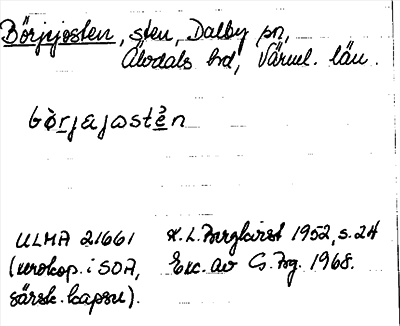 Börjejosten, sten, Dalby sn,
Älvdals hd, Värml. län.
ULMA 21661
(xerokop. i SOA,
särsk. kapsel).
K. L. Bergkvist 1952, s. 24
Exc. av G. Bg. 1968.